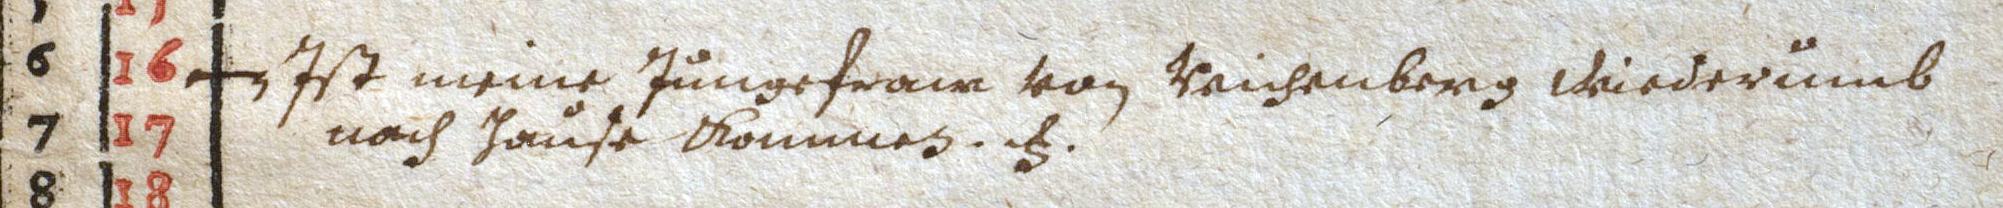 6 16 Ist meine Jungefraw von Reichenberg Wiederumb
7 17 nach Hause Kommen. etc.
8 18